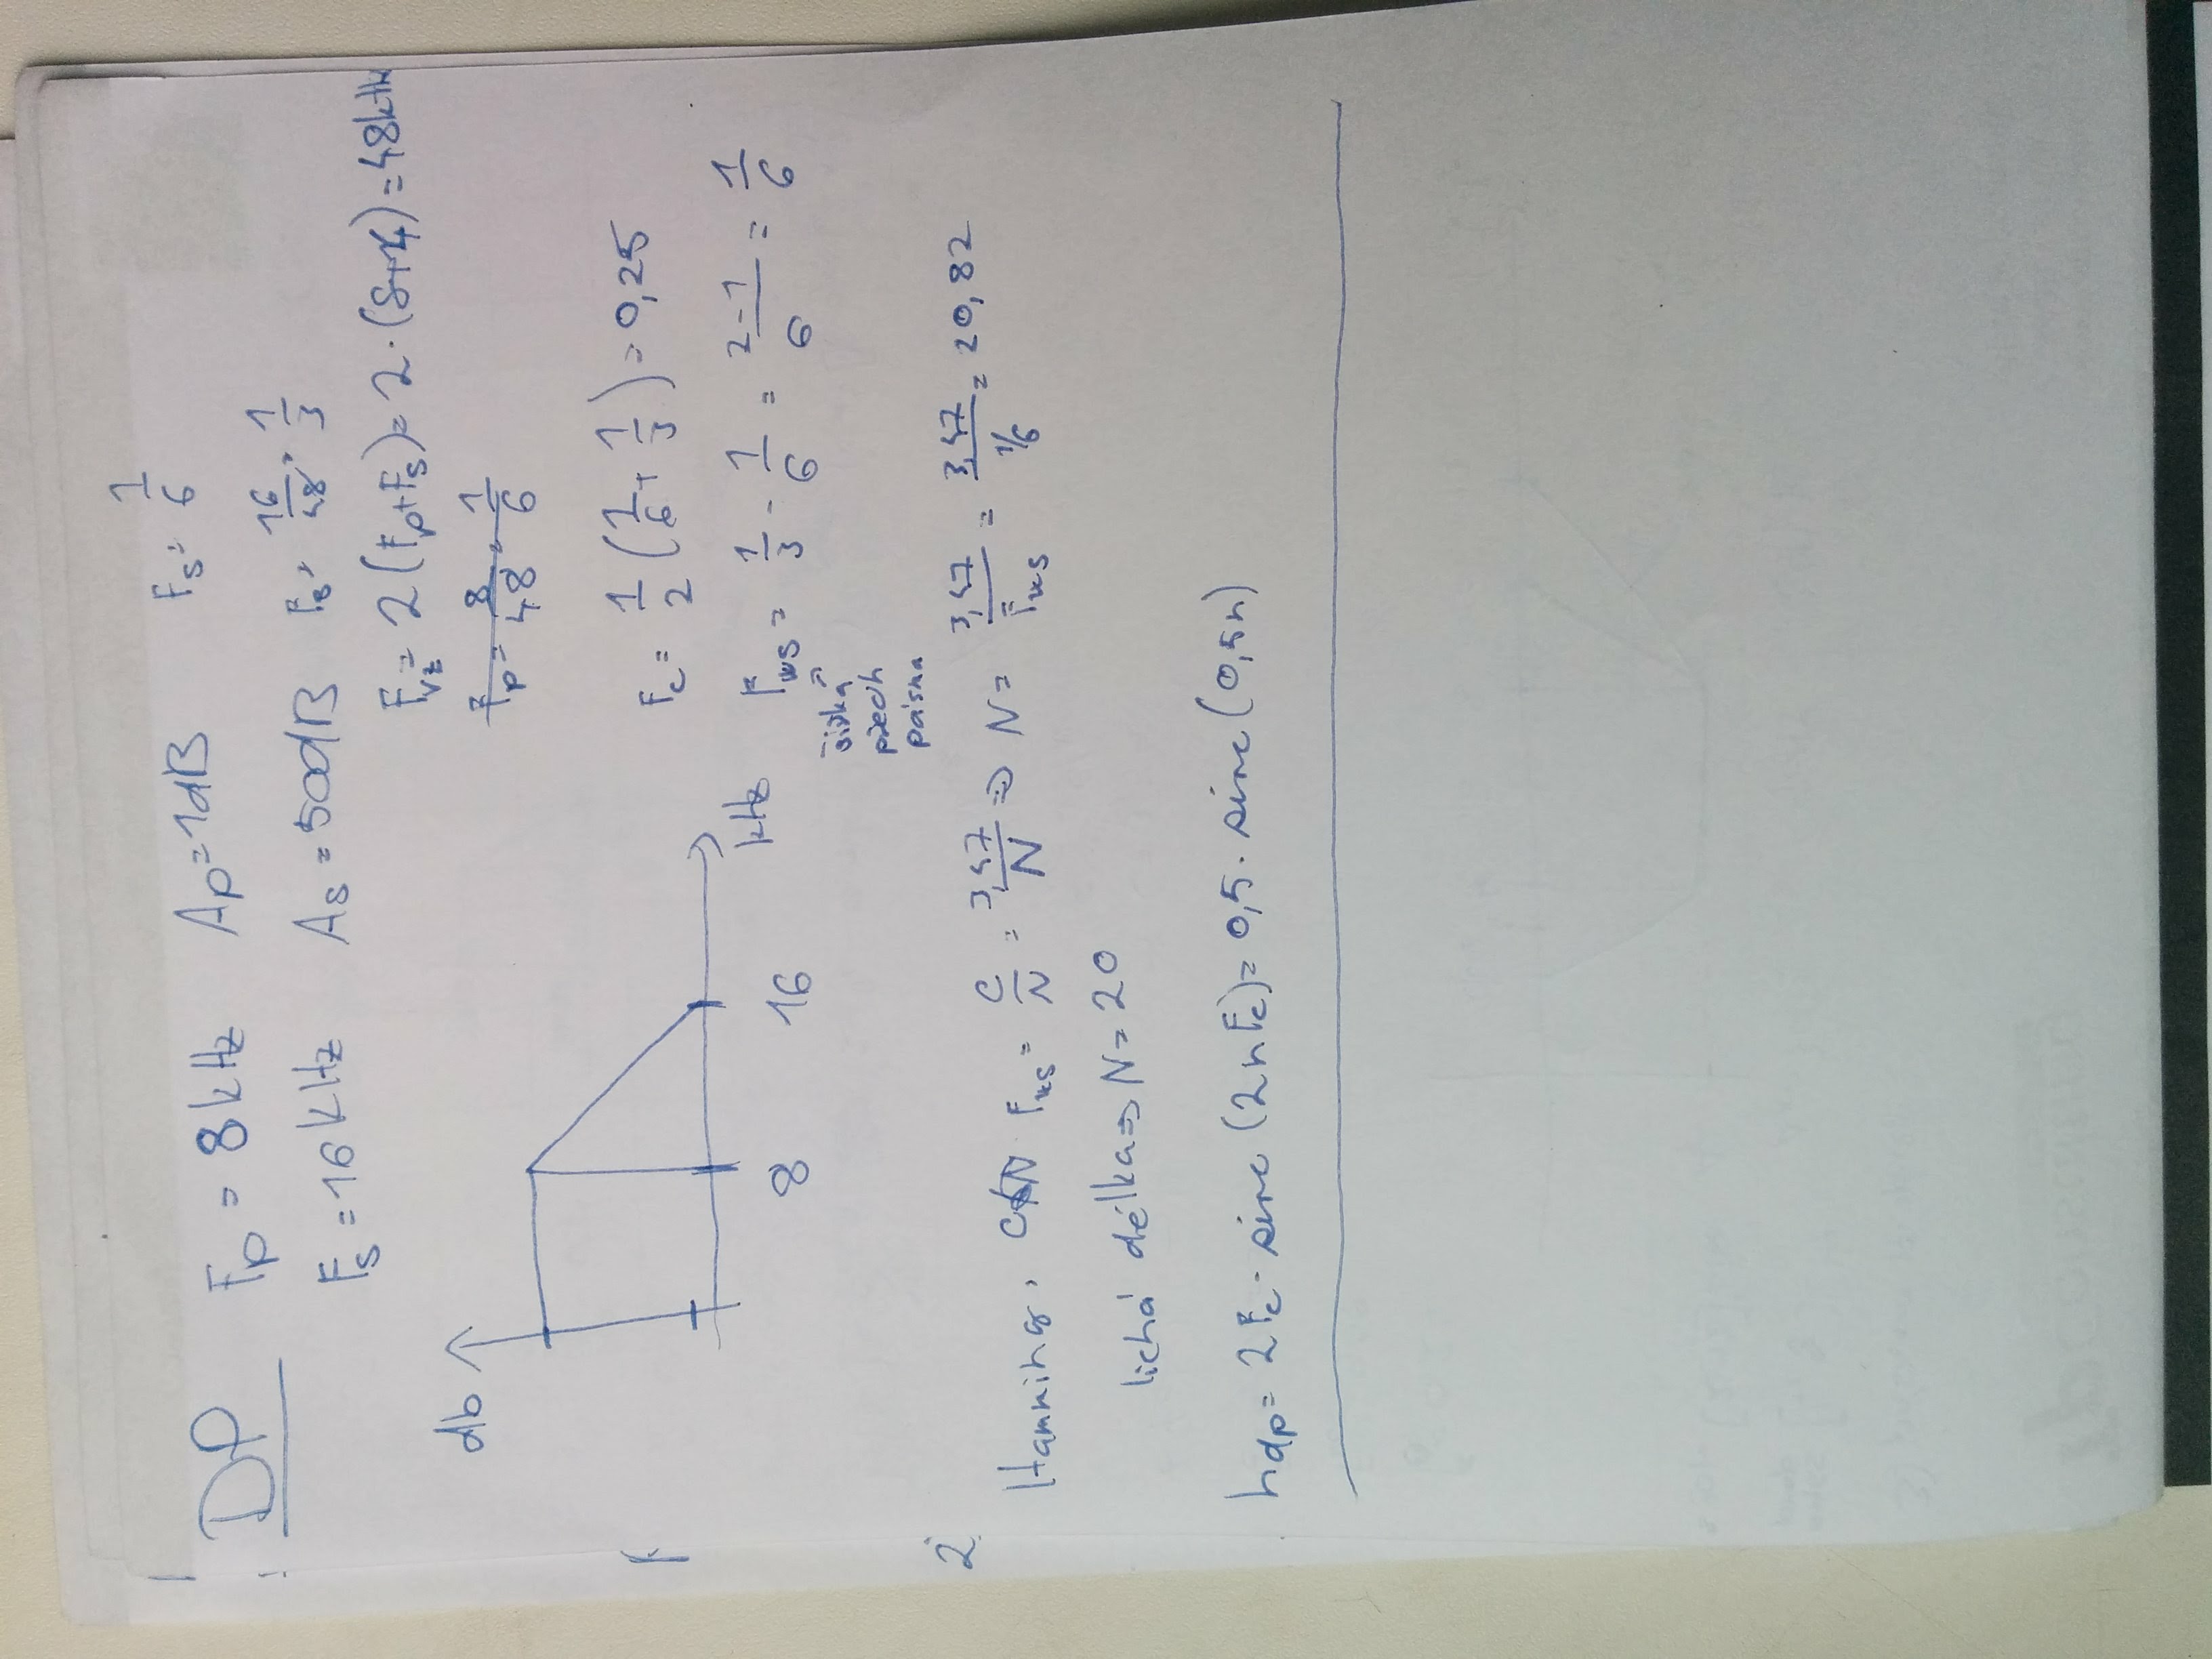 DP
Fp = 8kHz Ap=1dB Fs= 1/6
Fs=16kHz As=50dB Fs= 16/48 = 1/3
Fvz= 2(Fp+Fs)= 2·(8+14)=48kHz
Fp= 8/48 = 1/6
db
8 16 kHz
Fc= 1/2 (1/6+1/3)=0,25
Fws= 1/3 - 1/6 = 2-1/6 = 1/6
šířka
přech
pásma
2.
Hamming, Fws= C/N = 3,47/N => N= 3,47/Fws = 3,47/1/6 = 20,82
lichá délka=> N=20
hdp= 2Fc·sinc(2nFc)=0,5·sinc(0,5n)